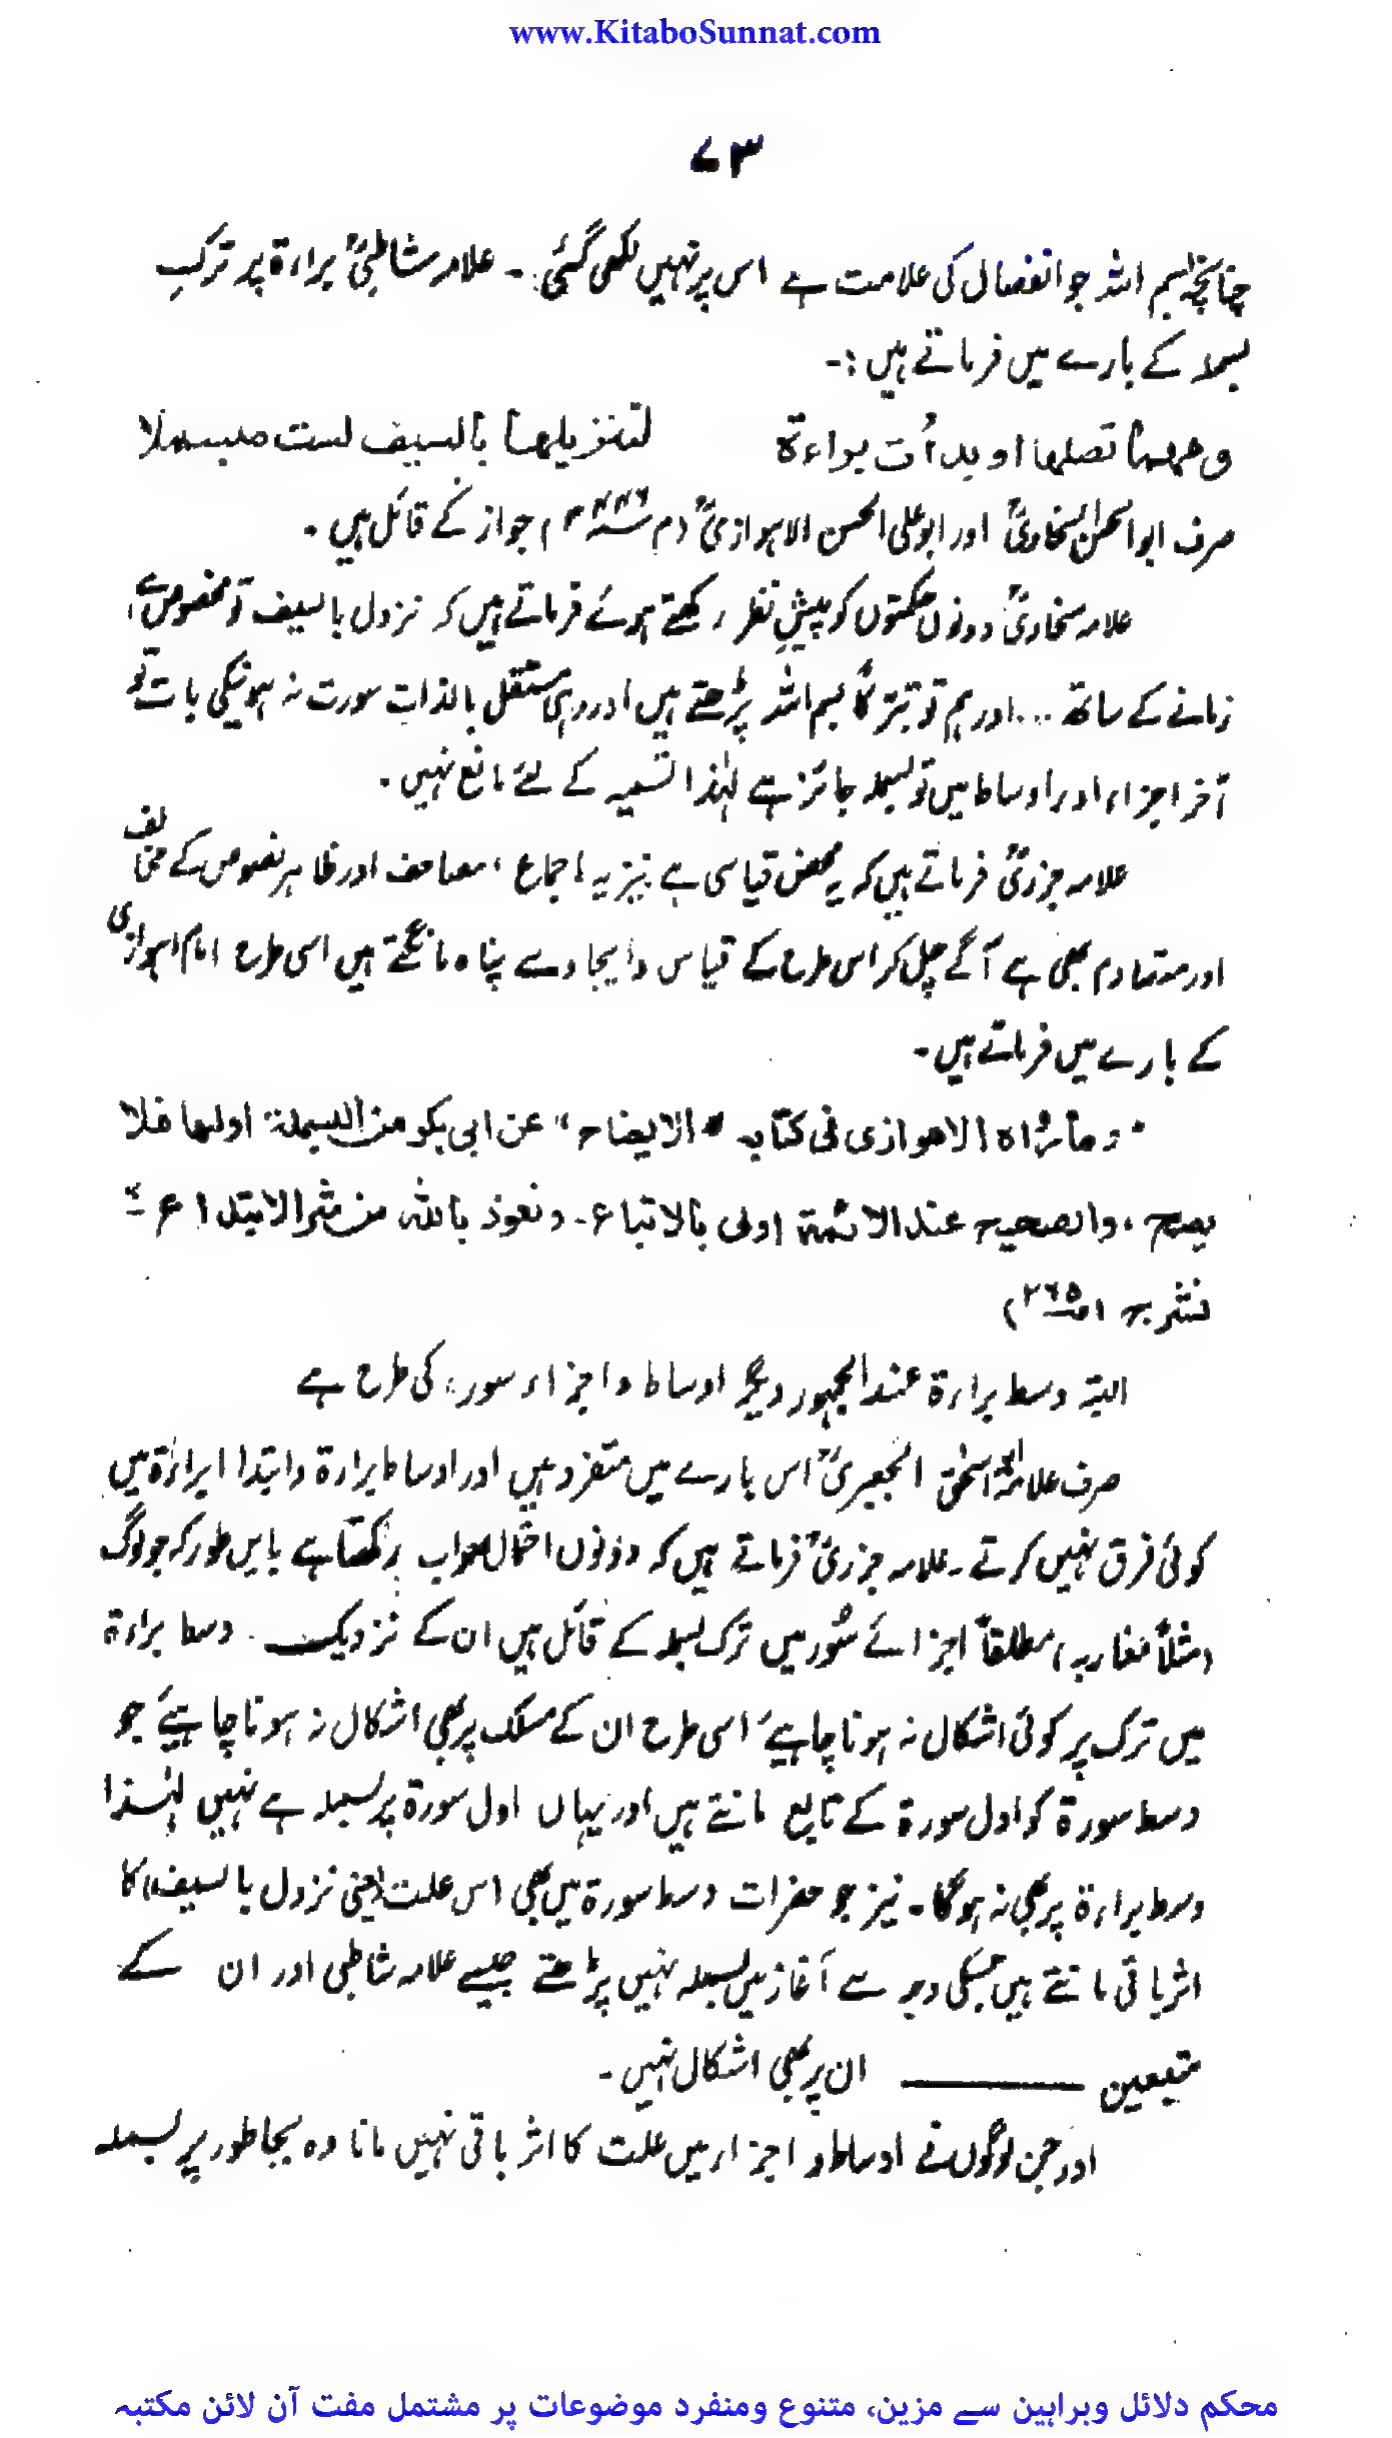 www.KitaboSunnat.com
۷۳
چنانچہ بسم اللہ جو انفصال کی علامت ہے اس پر نہیں لکھی گئی۔ علامہ شاطبیؒ براءۃ پر ترکِ
بسملہ کے بارے میں فرماتے ہیں :-
ومهما تصلها او بدأت براءة لتنزيلها بالسيف لست مبسملا
صرف ابوالحسن السخاویؒ اور ابو علی الحسن الاہوازیؒ (م ۴۴۶ھ) جواز کے قائل ہیں۔
علامہ سخاویؒ دونوں حکمتوں کو پیشِ نظر رکھتے ہوئے فرماتے ہیں کہ نزول بالسیف تو مخصوص ہے،
زمانے کے ساتھ ... اور ہم تو تبرکاً بسم اللہ پڑھتے ہیں اور رہی مستقل بالذات سورت نہ ہونیکی بات تو
آخر اجزاء اور اوساط میں تو بسملہ جائز ہے لہٰذا تسمیہ کے لئے مانع نہیں۔
علامہ جزریؒ فرماتے ہیں کہ یہ محض قیاسی ہے نیز یہ اجماع، مصاحف اور ظاہر نصوص کے مخالف
اور متصادم بھی ہے آگے چل کر اس طرح کے قیاس و ایجاد سے پناہ مانگتے ہیں اسی طرح امام اہوازی
کے بارے میں فرماتے ہیں۔
"وما رواه الاهوازى فى كتابه "الايضاح" عن ابى بكر من البسملة اولها فلا
يصح، والصحيح عند الائمة اولى بالاتباع۔ ونعوذ بالله من شر الابتداع"
نشر ج ۱ ص ۲۶۵)
البتہ وسط براءۃ عند الجمہور دیگر اوساط و اجزاء سور، کی طرح ہے
صرف علامہ ابو اسحٰق الجعبریؒ اس بارے میں متفرد ہیں اور اوساط براءۃ و ابتدا براءۃ میں
کوئی فرق نہیں کرتے۔ علامہ جزریؒ فرماتے ہیں کہ دونوں احتمال صواب رکھتا ہے بایں طور کہ جو لوگ
(مثلاً مغاربہ) مطلقاً اجزائے سُور میں ترک بسملہ کے قائل ہیں ان کے نزدیک وسط براءۃ
میں ترک پر کوئی اشکال نہ ہونا چاہیئے اسی طرح ان کے مسلک پر بھی اشکال نہ ہونا چاہیئے جو
وسط سورۃ کو اول سورۃ کے تابع مانتے ہیں اور یہاں اول سورۃ پر بسملہ ہے نہیں لہٰذا
وسط براءۃ پر بھی نہ ہوگا۔ نیز جو حضرات وسط سورۃ میں بھی اس علت (یعنی نزول بالسیف) کا
اثر باقی مانتے ہیں جسکی وجہ سے آغاز میں بسملہ نہیں پڑھتے جیسے علامہ شاطبی اور ان کے
متبعین ——— ان پر بھی اشکال نہیں۔
اور جن لوگوں نے اوساط و اجزاء میں علت کا اثر باقی نہیں مانا وہ بجا طور پر بسملہ
محکم دلائل وبراہین سے مزین، متنوع ومنفرد موضوعات پر مشتمل مفت آن لائن مکتبہ